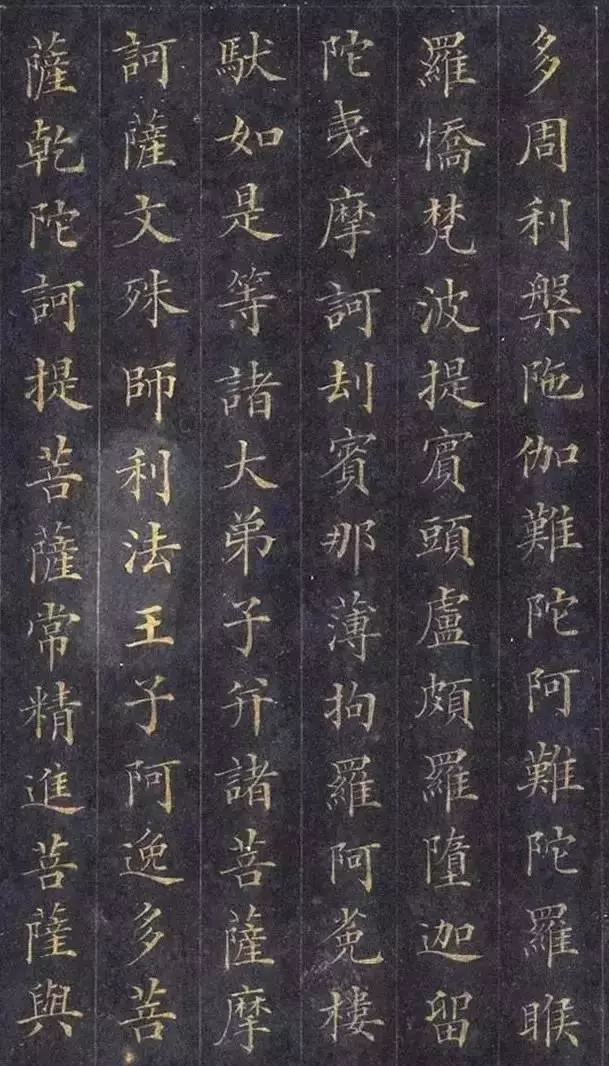 多周利槃陁伽難陀阿難陀羅睺
羅憍梵波提賓頭盧頗羅墮迦留
陀夷摩訶刦賓那薄拘羅阿㝹樓
馱如是等諸大弟子并諸菩薩摩
訶薩文殊師利法王子阿逸多菩
薩乾陀訶提菩薩常精進菩薩與